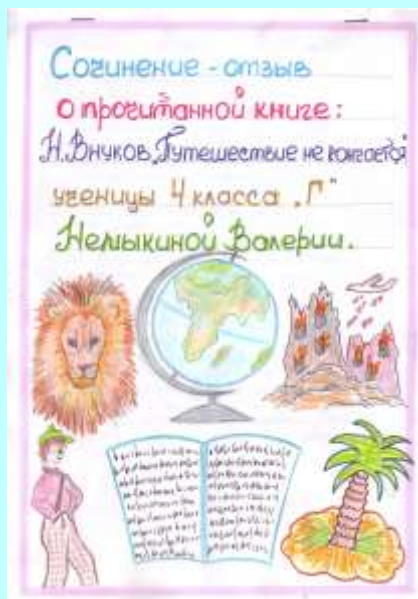 Сочинение - отзыв
о прочитанной книге:
Н. Внуков „Путешествие не кончается
ученицы 4 класса „Г"
Немыкиной Валерии.